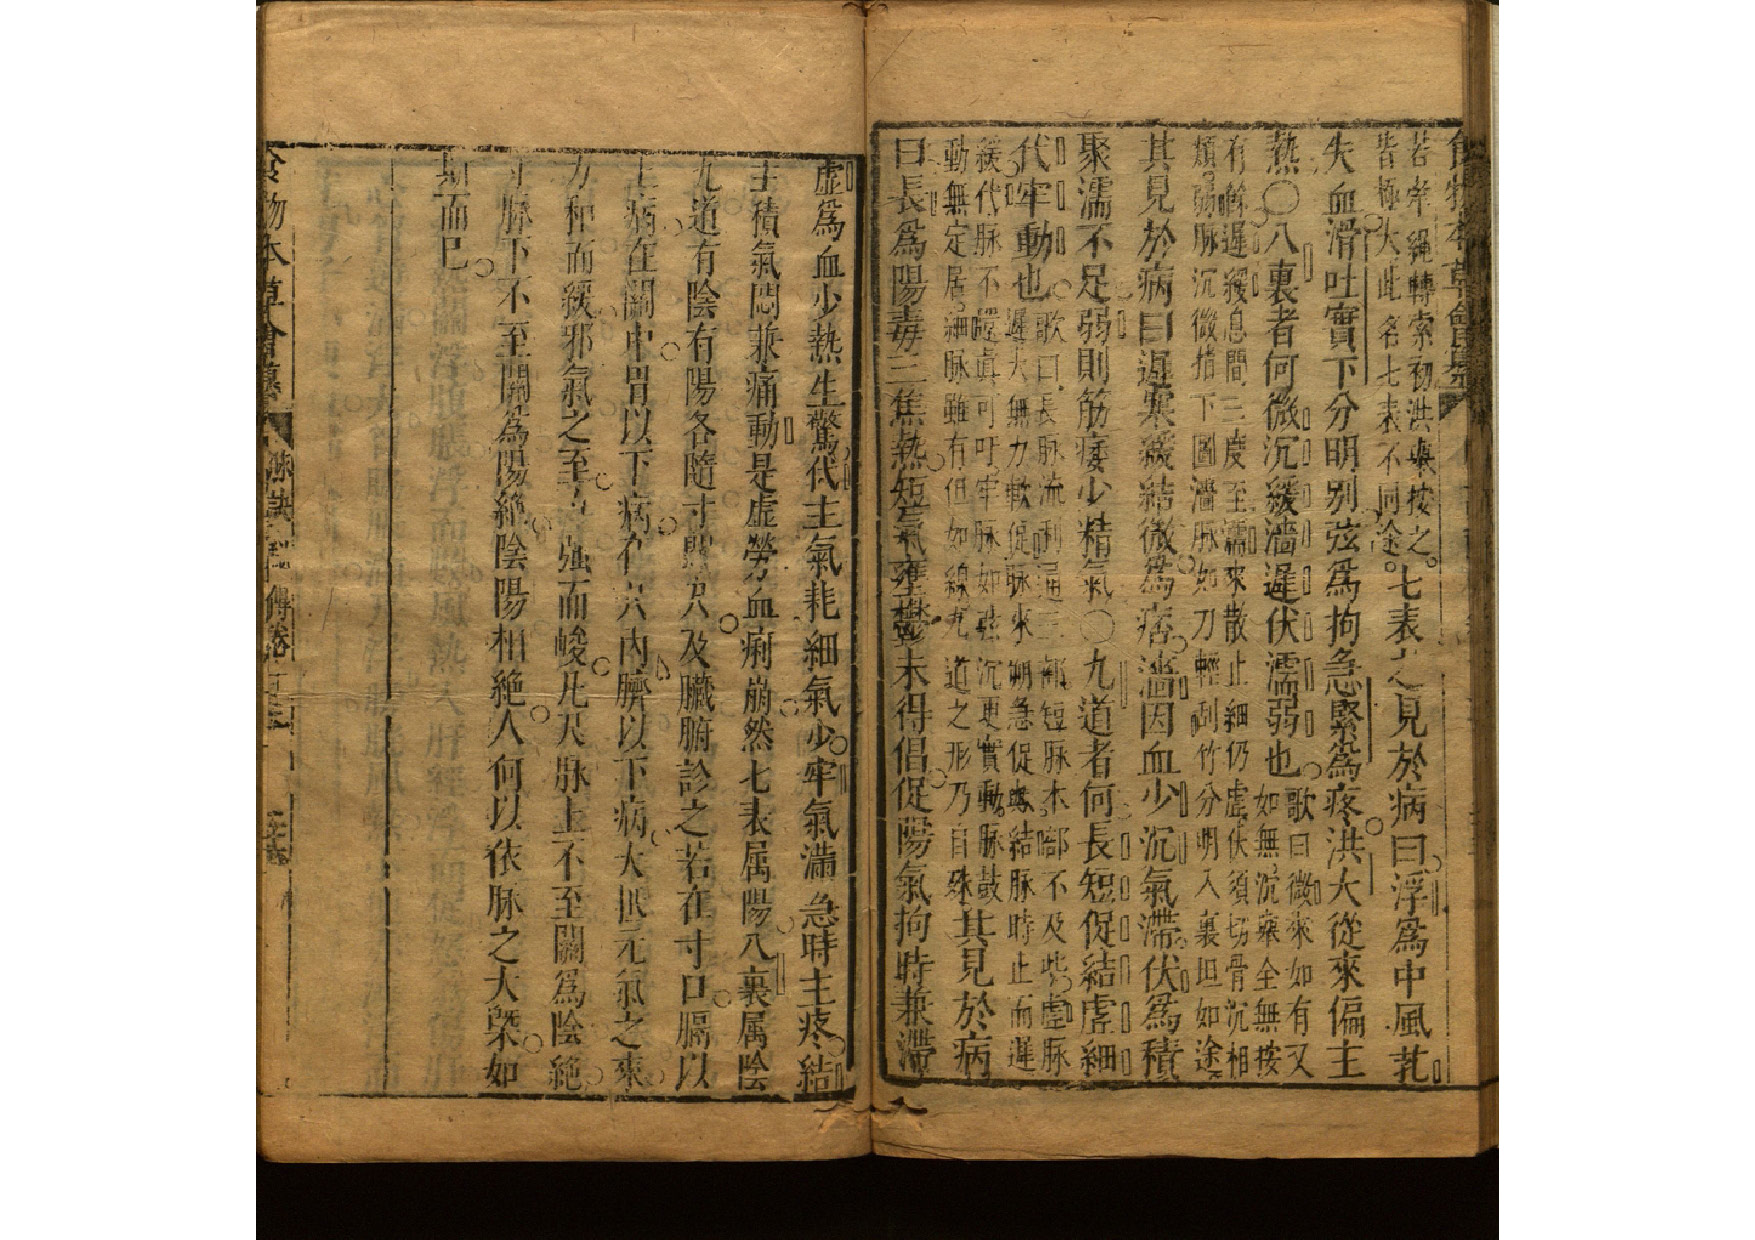 食物本草會纂
若牽繩轉索初洪來按之
皆極大此名七表不同途七表之見於病曰浮為中風芤
失血滑吐實下分明別弦為拘急緊為疼洪大從來偏主
熱○八裏者何微沉緩濇遲伏濡弱也歌曰微來如有又如無沉舉全無按
有餘遲緩息間三度至濡來散止細仍虛伏須切骨沉相
類弱脉沉微指下圖濇脉如刀輕刮竹分明入裏坦如途
其見於病曰遲寒緩結微為痞濇因血少沉氣滯伏為積
聚濡不足弱則筋痿少精氣○九道者何長短促結虛細
代牢動也歌曰長脉流利通三部短脉本部不及些虛脉
遲大無力軟促脉來朔急促嗟結脉時止而遲
緩代脉不還眞可吁牢脉如弦沉更實動脉鼓
動無定居細脉雖有但如線九道之形乃自殊其見於病
曰長為陽毒三焦熱短氣壅鬱未得倡促陽氣拘時兼滯
虛為血少熱生驚代主氣耗細氣少牢氣滿急時主疼結
主積氣悶兼痛動是虛勞血痢崩然七表属陽八裏属陰
九道有陰有陽各隨寸關尺及臟腑診之若在寸口膈以
上病在關中胃以下病在尺內臍以下病大抵元氣之來
力和而緩邪氣之至力強而峻凡尺脉上不至關為陰絶
寸脉下不至關為陽絶陰陽相絶人何以依脉之大槩如
斯而已
食物本草會纂 脉訣 傳卷